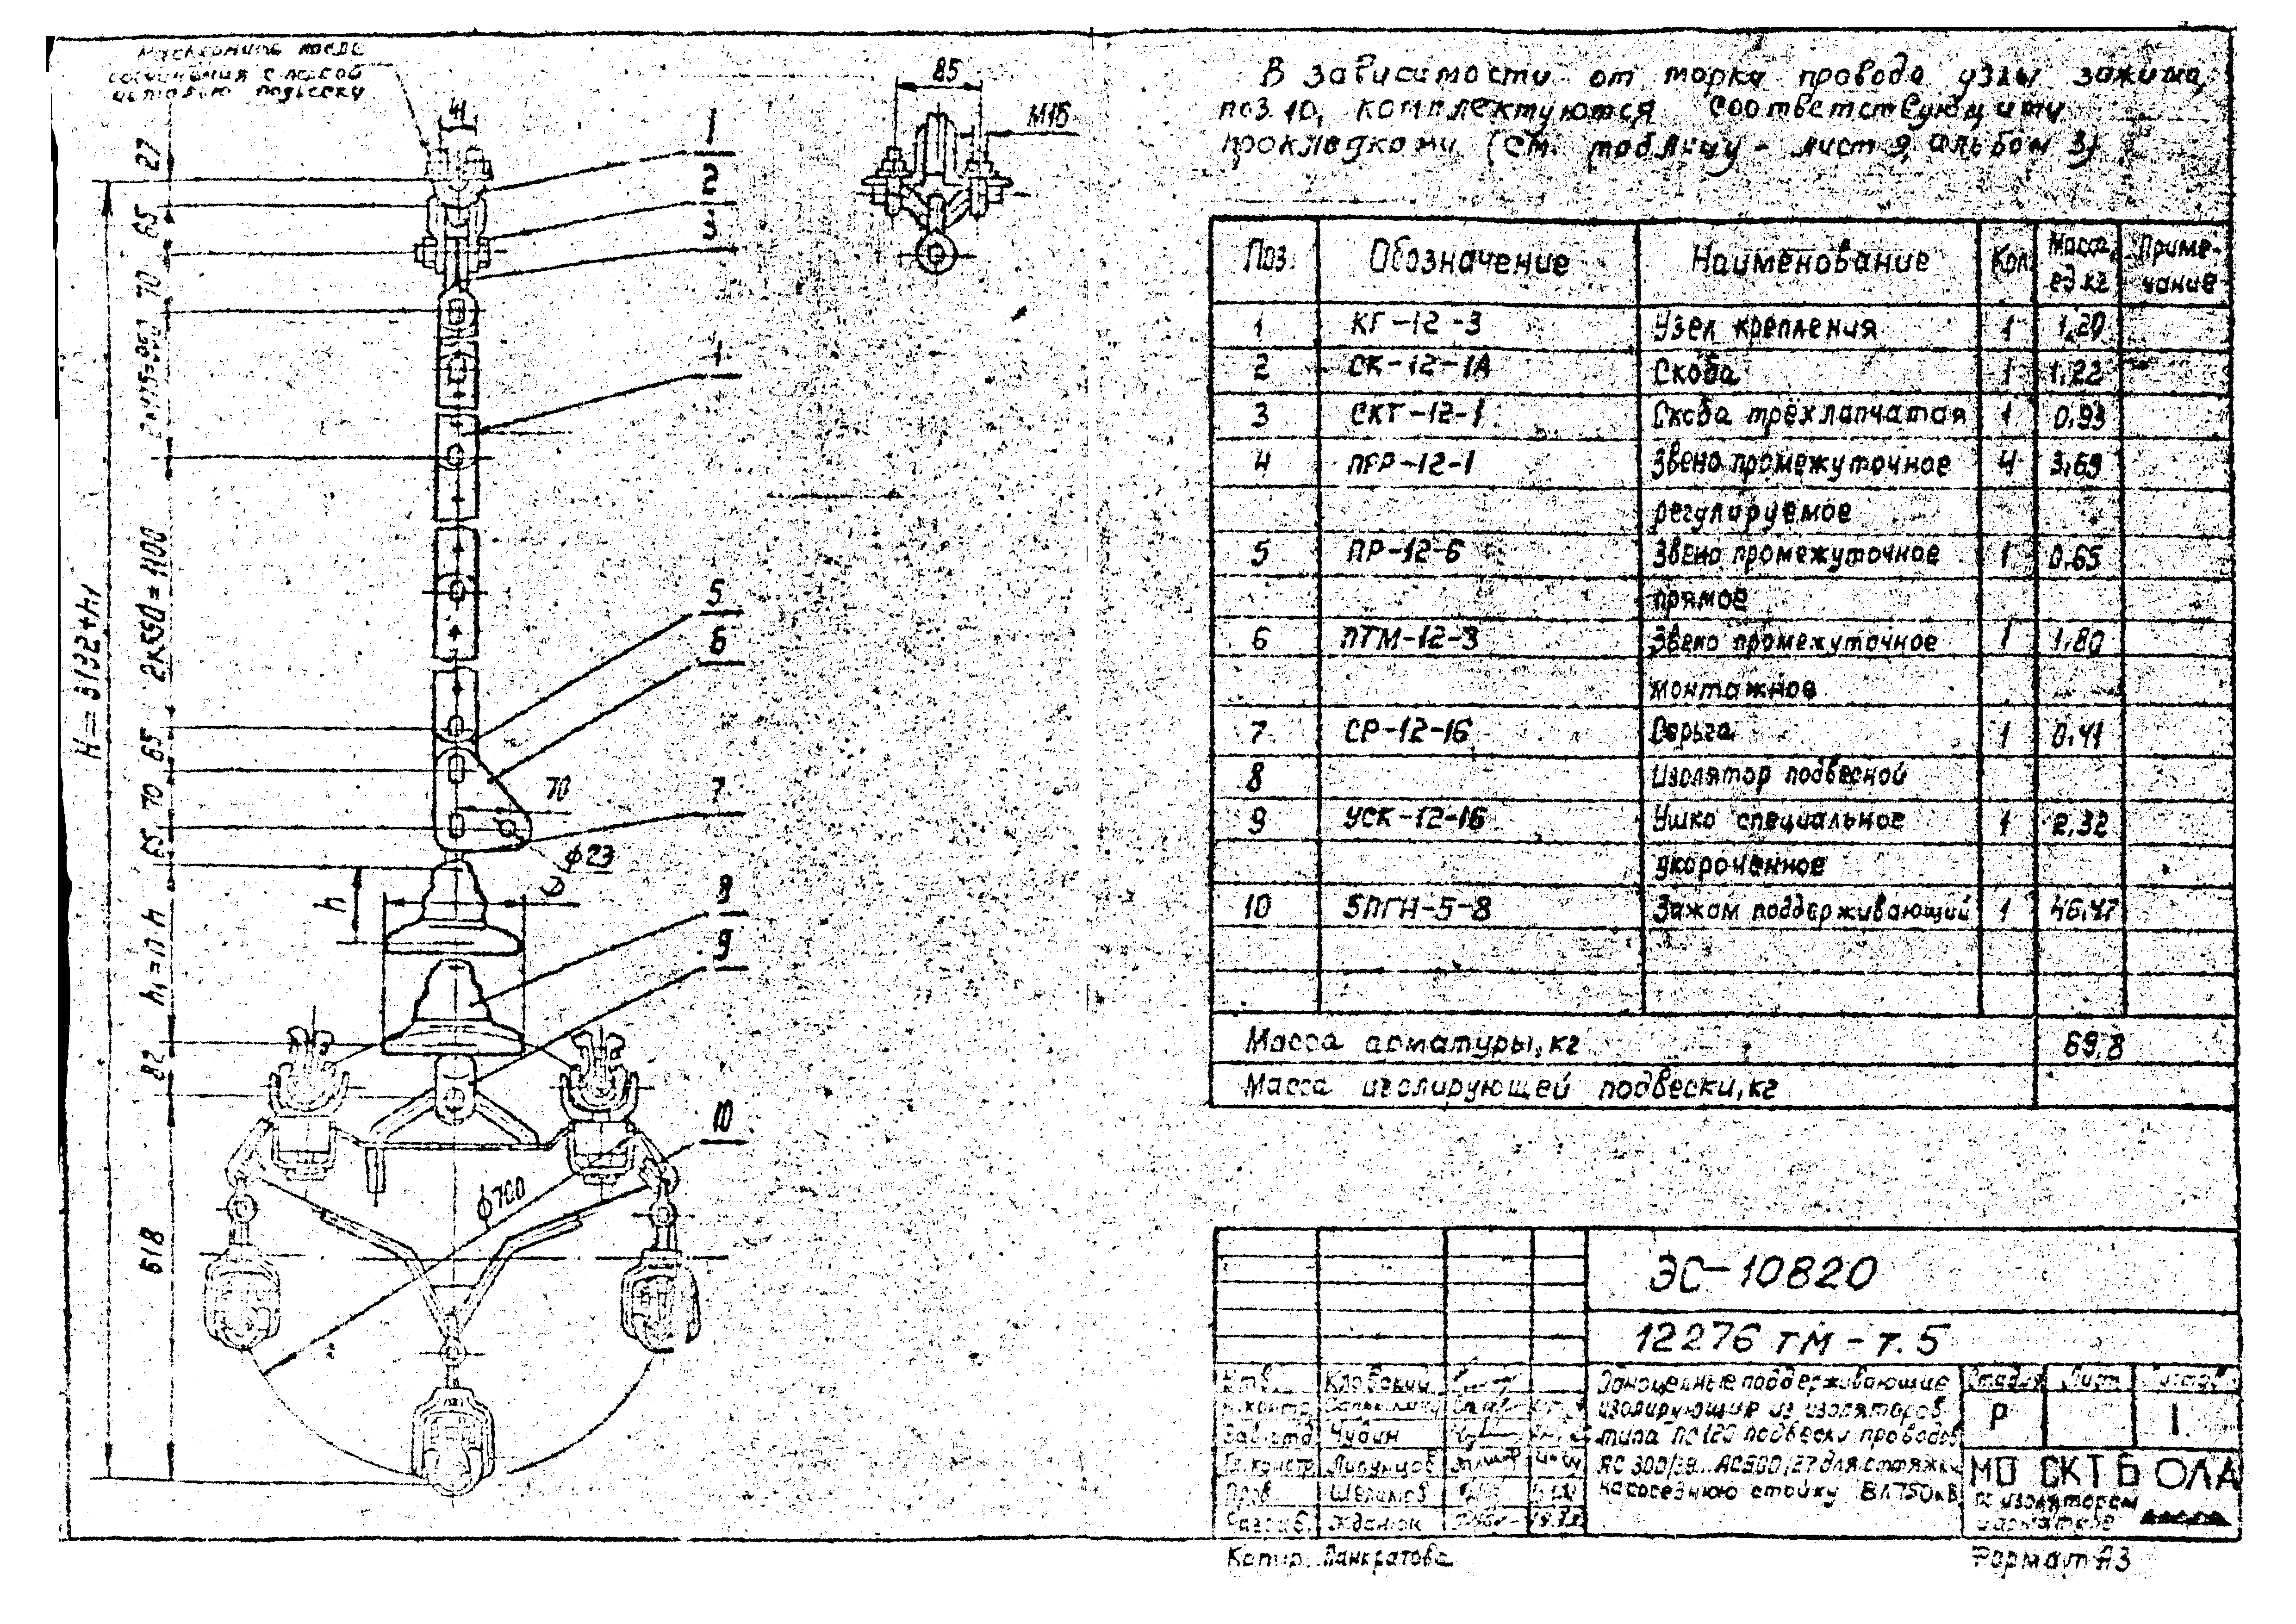 В зависимости от марки провода узлы зажима,
поз. 10, комплектуются соответствующими
прокладками (см. таблицу - лист 9, альбом 3)
Поз. Обозначение Наименование Кол. Масса ед. кг Примечание
1 КГ-12-3 Узел крепления 1 1,20
2 СК-12-1А Скоба 1 1,22
3 СКТ-12-1 Скоба трёхлапчатая 1 0,93
4 ПРР-12-1 Звено промежуточное 4 3,69
регулируемое
5 ПР-12-6 Звено промежуточное 1 0,65
прямое
6 ПТМ-12-3 Звено промежуточное 1 1,80
монтажное
7 СР-12-16 Серьга 1 0,41
8 Изолятор подвесной
9 УСК-12-16 Ушко специальное 1 2,32
укороченное
10 5ПГН-5-8 Зажим поддерживающий 1 46,47
Масса арматуры, кг 69,8
Масса изолирующей подвески, кг
85
М16
1
2
3
27
65
70
H=3132+h1
2х550=1100
65
70
65
h1=n·h
82
618
5
6
7
70
ϕ23
D
h
8
9
10
ϕ700
ЭС-10820
12276 тм - т.5
Одноцепные поддерживающие
изолирующие из изоляторов
типа ПС120 подвески проводов
для оттяжки
на соседнюю стойку ВЛ750кВ
Стадия Лист
Р 1
МО СКТБ
по изоляторам
и арматуре
Зав. отд. Чубин
Гл. констр.
Пров.
Разраб. Жданюк
Копир. Панкратова
Формат А3